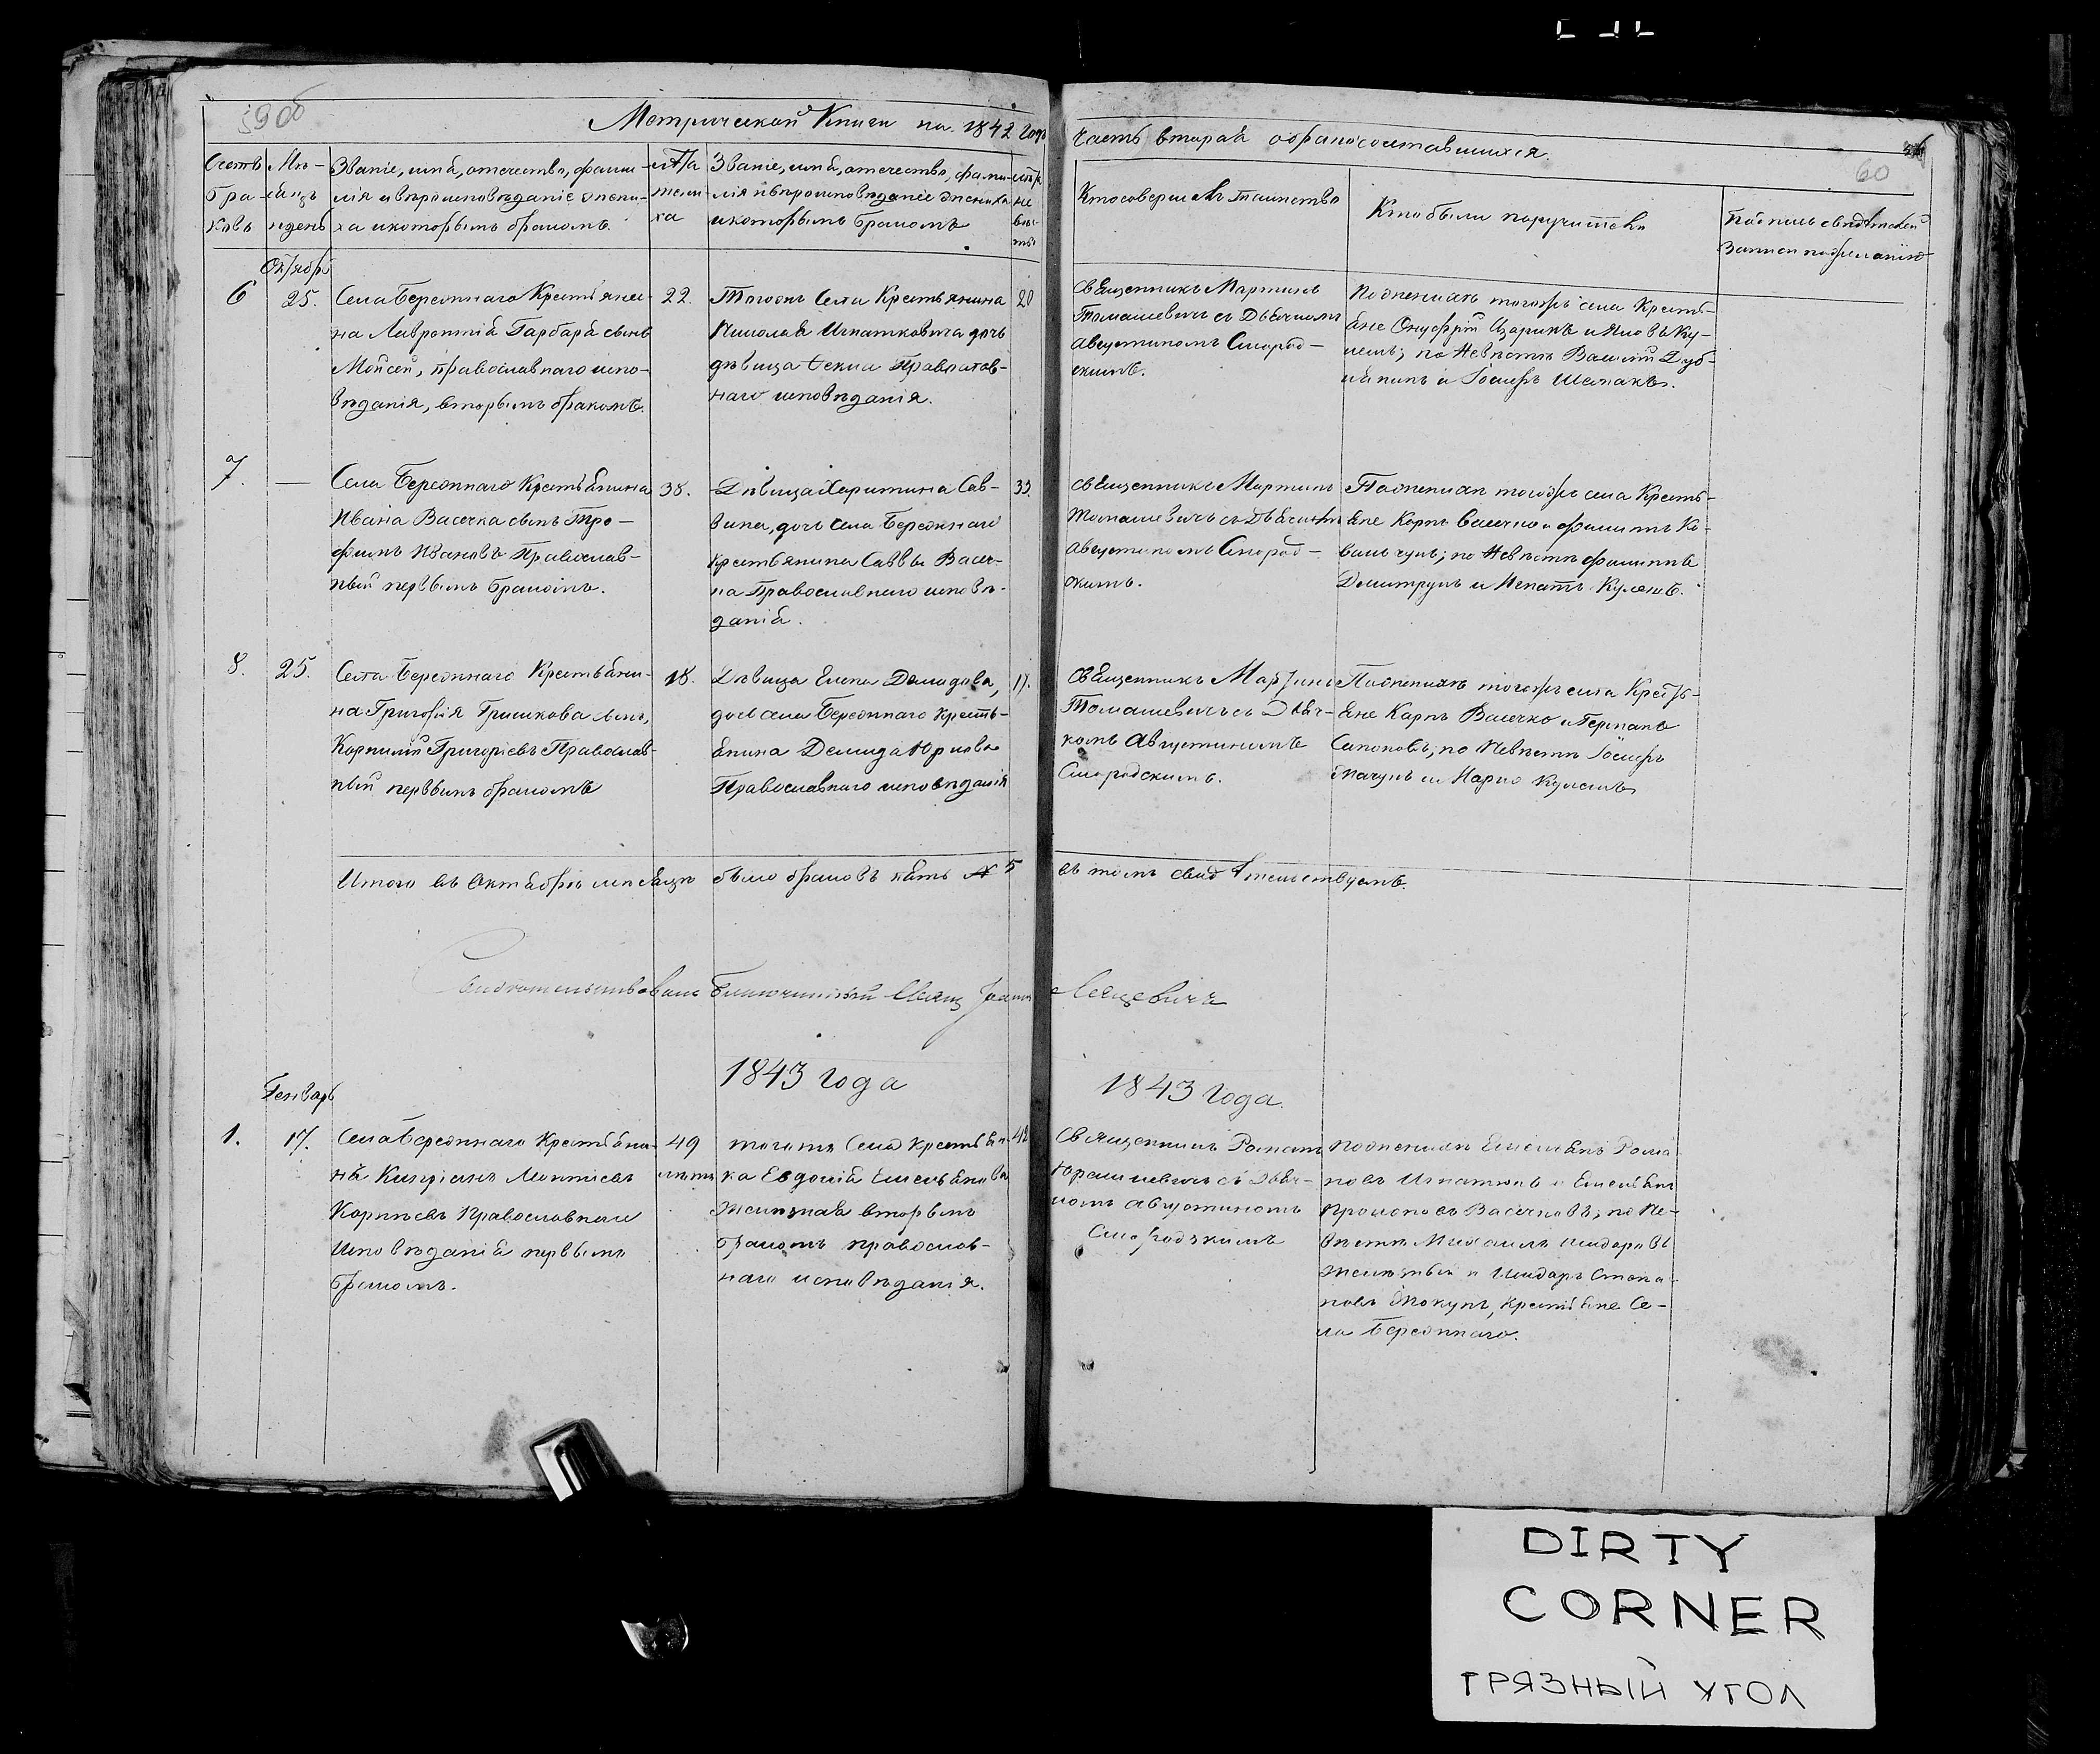 Метрической Книги на 1842 годъ
Часть вторая о бракосочетавшихся.
60
Счетъ браковъ
Мѣсяцъ и день
Званіе, имя, отечество, фамилія и вѣроисповѣданіе жениха и которымъ бракомъ.
Лѣта жениха
Званіе, имя, отечество, фамилія и вѣроисповѣданіе
и которымъ бракомъ
Кто совершалъ таинство
Кто были поручители
Подпись свидѣтелей записи по желанію
Октябрь
6
25.
Села Бережнаго Крестьяни-
на Лаврентія Гарбара сынъ
Мойсей, православнаго испо-
вѣданія, вторымъ бракомъ.
22.
Тогожъ Села Крестьянина
Николая Игнатковича дочь
дѣвица Ѳекла Православ-
наго исповѣданія.
20
Священникъ Мартинъ
Томашевичъ съ Дьячкомъ
Августиномъ Смород-
скимъ.
По женихѣ тогожъ села Кресть-
яне Онуфрій Царикъ и
по невѣстѣ Василій
и Іосифъ
7.
—
Села Бережнаго Крестьянина
Ивана Васечка сынъ Тро-
фимъ Ивановъ Православ-
ный первымъ бракомъ.
38.
Дѣвица Харитина Сав-
вина, дочь села Бережнаго
крестьянина Саввы Васеч-
ка Православнаго исповѣ-
данія.
33.
Священникъ Мартинъ
Томашевичъ съ Дьячкомъ
Августиномъ Смород-
скимъ.
По женихѣ тогожъ села Кресть-
яне Карпъ Васечко и Филипъ Ко-
вальчукъ; по невѣстѣ Филиппъ
Дмитрукъ и Игнатъ
8.
25.
Села Бережнаго Крестьяни-
на Григорія Гришкова сынъ,
Корнилій Григорьевъ Православ-
ный первымъ бракомъ
18.
Дѣвица Елена Демидова,
дочь села Бережнаго кресть-
янина Демида Юркова
Православнаго исповѣданія
17.
Священникъ Мартинъ
Томашевичъ съ Дьяч-
комъ Августиномъ
Смородскимъ.
По женихѣ тогожъ села Кресть-
яне Карпъ Васечко и Германъ
по невѣстѣ Іосифъ
Итого въ Октябрѣ мѣсяцѣ было браковъ пять 5 въ томъ свидѣтельствуемъ.
Свидѣтельствовалъ Благочинный Свящ. Іоаннъ
1843 года
1843 года.
Генварь
1.
17.
Села Бережнаго Крестьяни-
нъ Кипріанъ
Корнѣевъ Православнаго
Исповѣданія первымъ
бракомъ.
49
лѣтъ
тогожъ Села крестьян-
ка Евдокія Емельянова
вторымъ
бракомъ православ-
наго исповѣданія.
42
Священникъ Романъ
Юрашкевичъ съ Дьяч-
комъ Августиномъ
Смородскимъ
По женихѣ Емельянъ Рома-
новъ Игнатюкъ и Емельянъ
Прокоповъ Васечковъ, по не-
вѣстѣ Михаилъ
и Исидоръ Степа-
новъ крестьяне Се-
ла Бережнаго.
DIRTY
CORNER
ГРЯЗНЫЙ УГОЛ